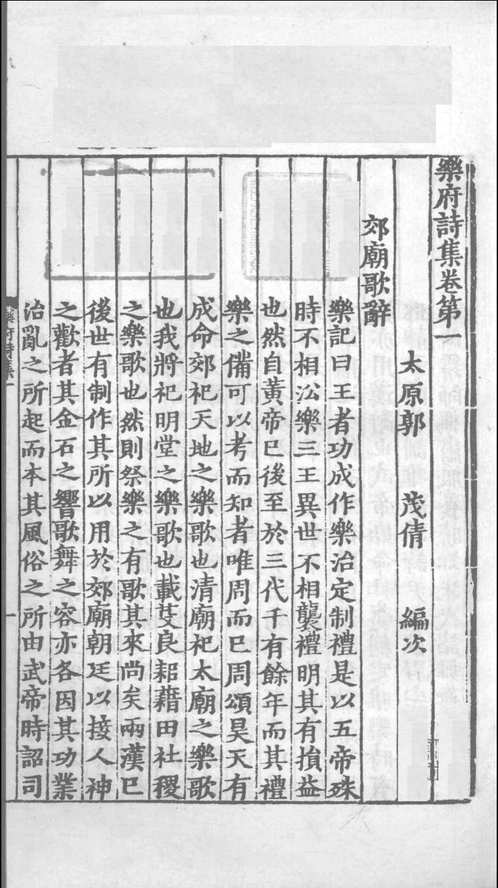 樂府詩集卷第一
太原郭　茂倩　編次
郊廟歌辭
樂記曰王者功成作樂治定制禮是以五帝殊
時不相㳂樂三王異世不相襲禮明其有損益
也然自黃帝巳後至於三代千有餘年而其禮
樂之備可以考而知者唯周而巳周頌昊天有
成命郊祀天地之樂歌也清廟祀太廟之樂歌
也我將祀明堂之樂歌也載芟良耜藉田社稷
之樂歌也然則祭樂之有歌其來尚矣兩漢巳
後世有制作其所以用於郊廟朝廷以接人神
之歡者其金石之響歌舞之容亦各因其功業
治亂之所起而本其風俗之所由武帝時詔司